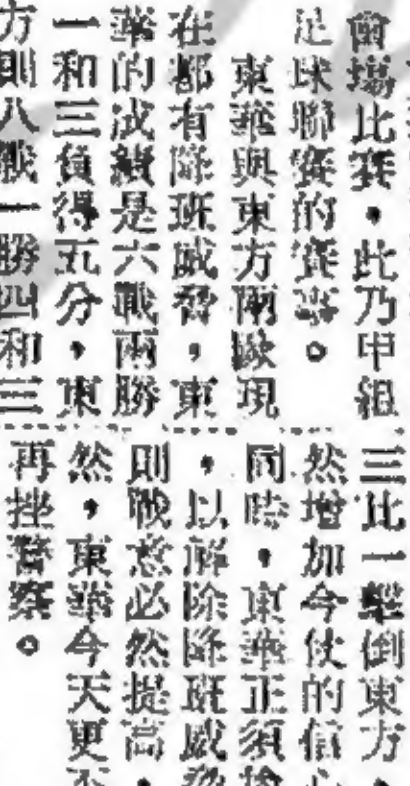 會場比賽，此乃甲組
足球聯賽的賽事。
東華與東方兩歐現
在都有降班威脅，東
華的成績是六戰兩勝
一和三負得五分，東
方則八戰一勝四和三
三比一擊倒東方，
然增加今仗的信心，
同時，東華正須搶
，以解除降班威脅
則戰意必然提高，
然，東華今天更不
再挫警察。